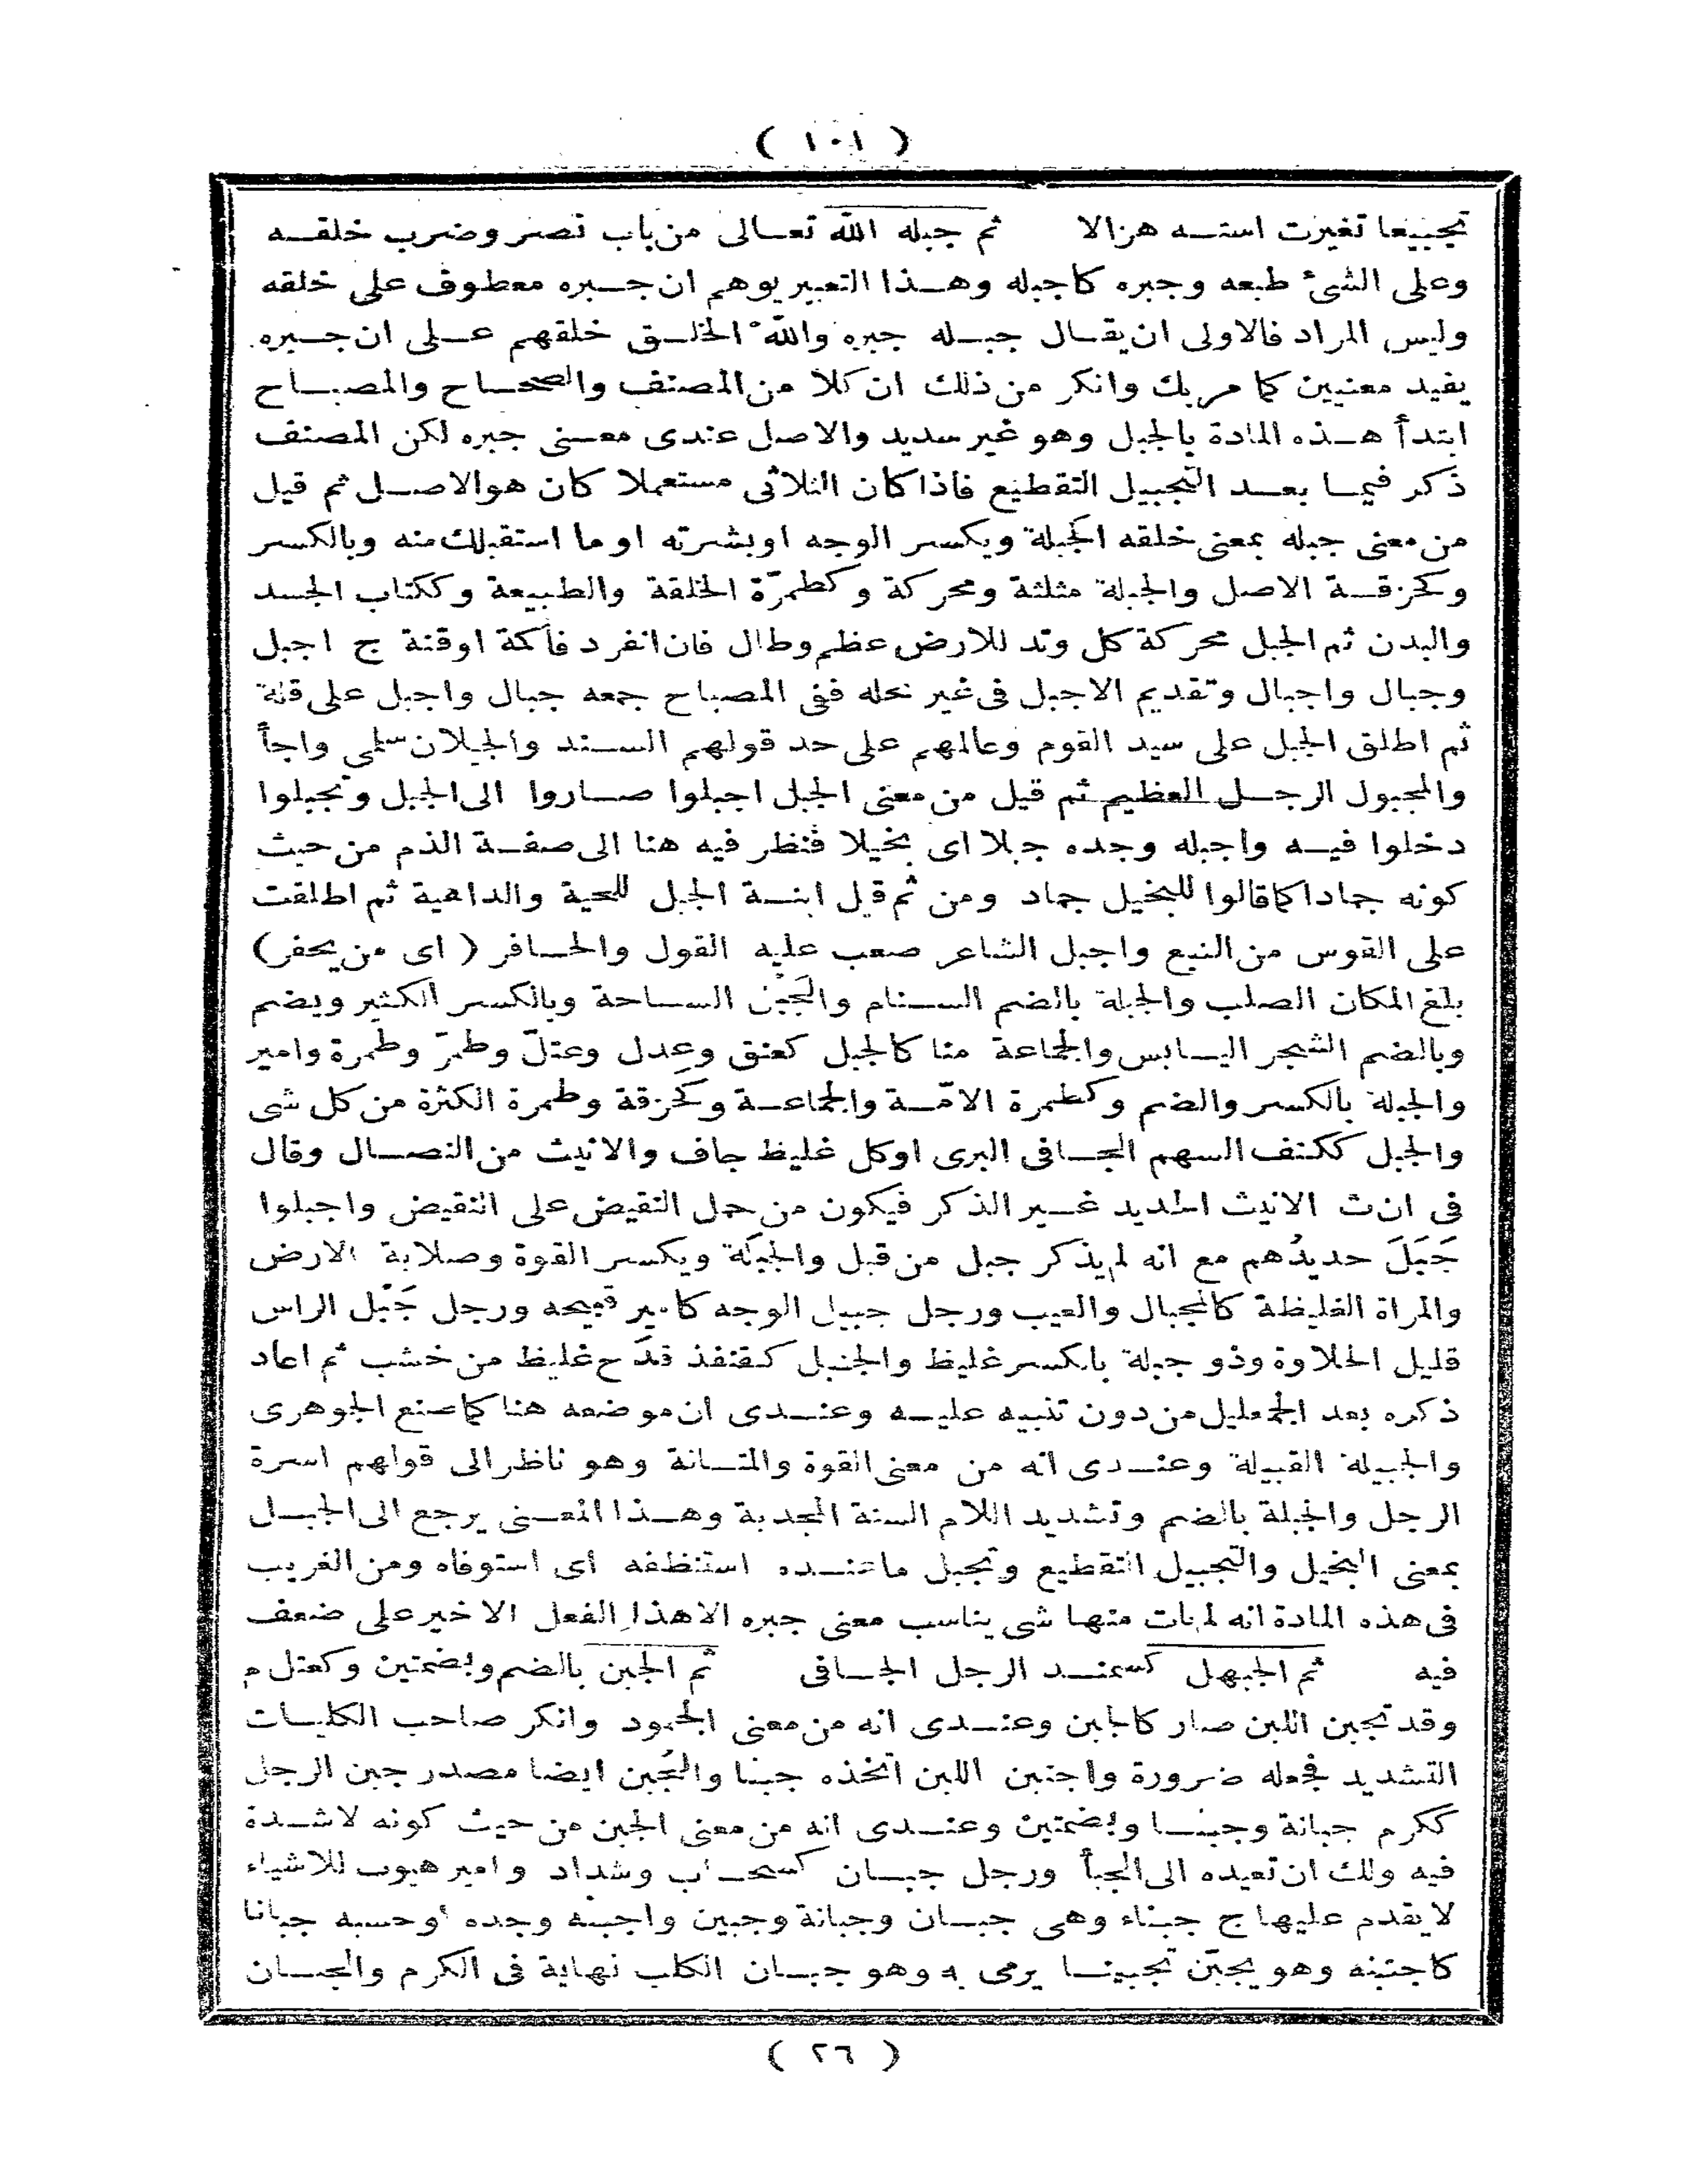 ( ١٠١ )
تجبيعا تغيرت استـه هزالا ثم جبله الله تعـالى من باب نصر وضرب خلقـه
وعلى الشئ طبعه وجبره كاجبله وهـذا التعبير يوهم ان جـبره معطوف على خلقه
وليس المراد فالاولى ان يقـال جبـله جبره والله الخلـق خلقهم عـلى ان جـبره
يفيد معنيين كما مر بك وانكر من ذلك ان كلا من المصنف والصحـاح والمصبـاح
ابتدأ هـذه المادة بالجبل وهو غير سديد والاصل عندى معـنى جبره لكن المصنف
ذكر فيمـا بعـد التجبيل التقطيع فاذا كان الثلاثى مستعملا كان هو الاصـل ثم قيل
من معنى جبله بمعنى خلقه الجَبلة ويكسر الوجه او بشرته او ما استقبلك منه وبالكسر
وكحزقـة الاصل والجبلة مثلثة ومحركة وكطمرّة الخلقة والطبيعة وككتاب الجسد
والبدن ثم الجبل محركة كل وتد للارض عظم وطال فان انفرد فأكمة او قنة ج اجبل
وجبال واجبال وتقديم الاجبل فى غير محله ففى المصباح جمعه جبال واجبل على قلة
ثم اطلق الجبل على سيد القوم وعالمهم على حد قولهم السـند والجبلان سلمى واجأ
والمجبول الرجـل العظيم ثم قيل من معنى الجبل اجبلوا صـاروا الى الجبل وتجبلوا
دخلوا فيـه واجبله وجده جبلا اى بخيلا فنظر فيه هنا الى صفـة الذم من حيث
كونه جمادا كما قالوا للبخيل جماد ومن ثم قيل ابنـة الجبل للحية والداهية ثم اطلقت
على القوس من النبع واجبل الشاعر صعب عليه القول والحـافر ( اى من يحفر)
بلغ المكان الصلب والجبلة بالضم السـنام والجَبْل السـاحة وبالكسر الكثير ويضم
وبالضم الشجر اليـابس والجماعة منا كالجبل كعنق وعِدل وعتلّ وطمرّ وطمرة وامير
والجبلة بالكسر والضم وكطمرة الامّـة والجماعـة وكحزقة وطمرة الكثرة من كل شى
والجبل ككتف السهم الجـافى البرى او كل غليظ جاف والانيث من النصـال وقال
فى ان ث الانيث الحديد غـير الذكر فيكون من حمل النقيض على النقيض واجبلوا
جَبَلَ حديدُهم مع انه لم يذكر جبل من قبل والجَبْلَة ويكسر القوة وصلابة الارض
والمراة الغليظة كالمجبال والعيب ورجل جبيل الوجه كامير قبيحه ورجل جَبْل الراس
قليل الحلاوة وذو جبلة بالكسر غليظ والجنبل كقنفذ قدَح غليظ من خشب ثم اعاد
ذكره بعد الجمعليل من دون تنبيه عليـه وعنـدى ان موضعه هنا كما صنع الجوهرى
والجبيلة القبيلة وعنـدى انه من معنى القوة والمتـانة وهو ناظر الى قولهم اسرة
الرجل والجبلة بالضم وتشديد اللام السنة المجدبة وهـذا المعـنى يرجع الى الجبـل
بمعنى البخيل والتجبيل التقطيع وتجبل ما عنـده استنظفه اى استوفاه ومن الغريب
فى هذه المادة انه لم يات منهـا شى يناسب معنى جبره الا هذا الفعل الاخير على ضعف
فيه ثم الجبهل كسمنـد الرجل الجـافى ثم الجبن بالضم وبضمتين وكعتل م
وقد تجبن اللبن صار كالجبن وعنـدى انه من معنى الجمود وانكر صاحب الكليـات
التشديد فجعله ضرورة واجتبن اللبن اتخذه جبنا والجُبن ايضا مصدر جبن الرجل
ككرم جبانة وجبنـا وبضمتين وعنـدى انه من معنى الجبن من حيث كونه لا شـدة
فيه ولك ان تعيده الى الجبأ ورجل جبـان كسحـاب وشداد وامير هيوب للاشياء
لا يقدم عليها ج جبناء وهى جبـان وجبانة وجبين واجبنه وجده او حسبه جبانا
كاجتبنه وهو يجبّن تجبينـا يرمى به وهو جبـان الكلب نهاية فى الكرم والجبـان
( ٢٦ )